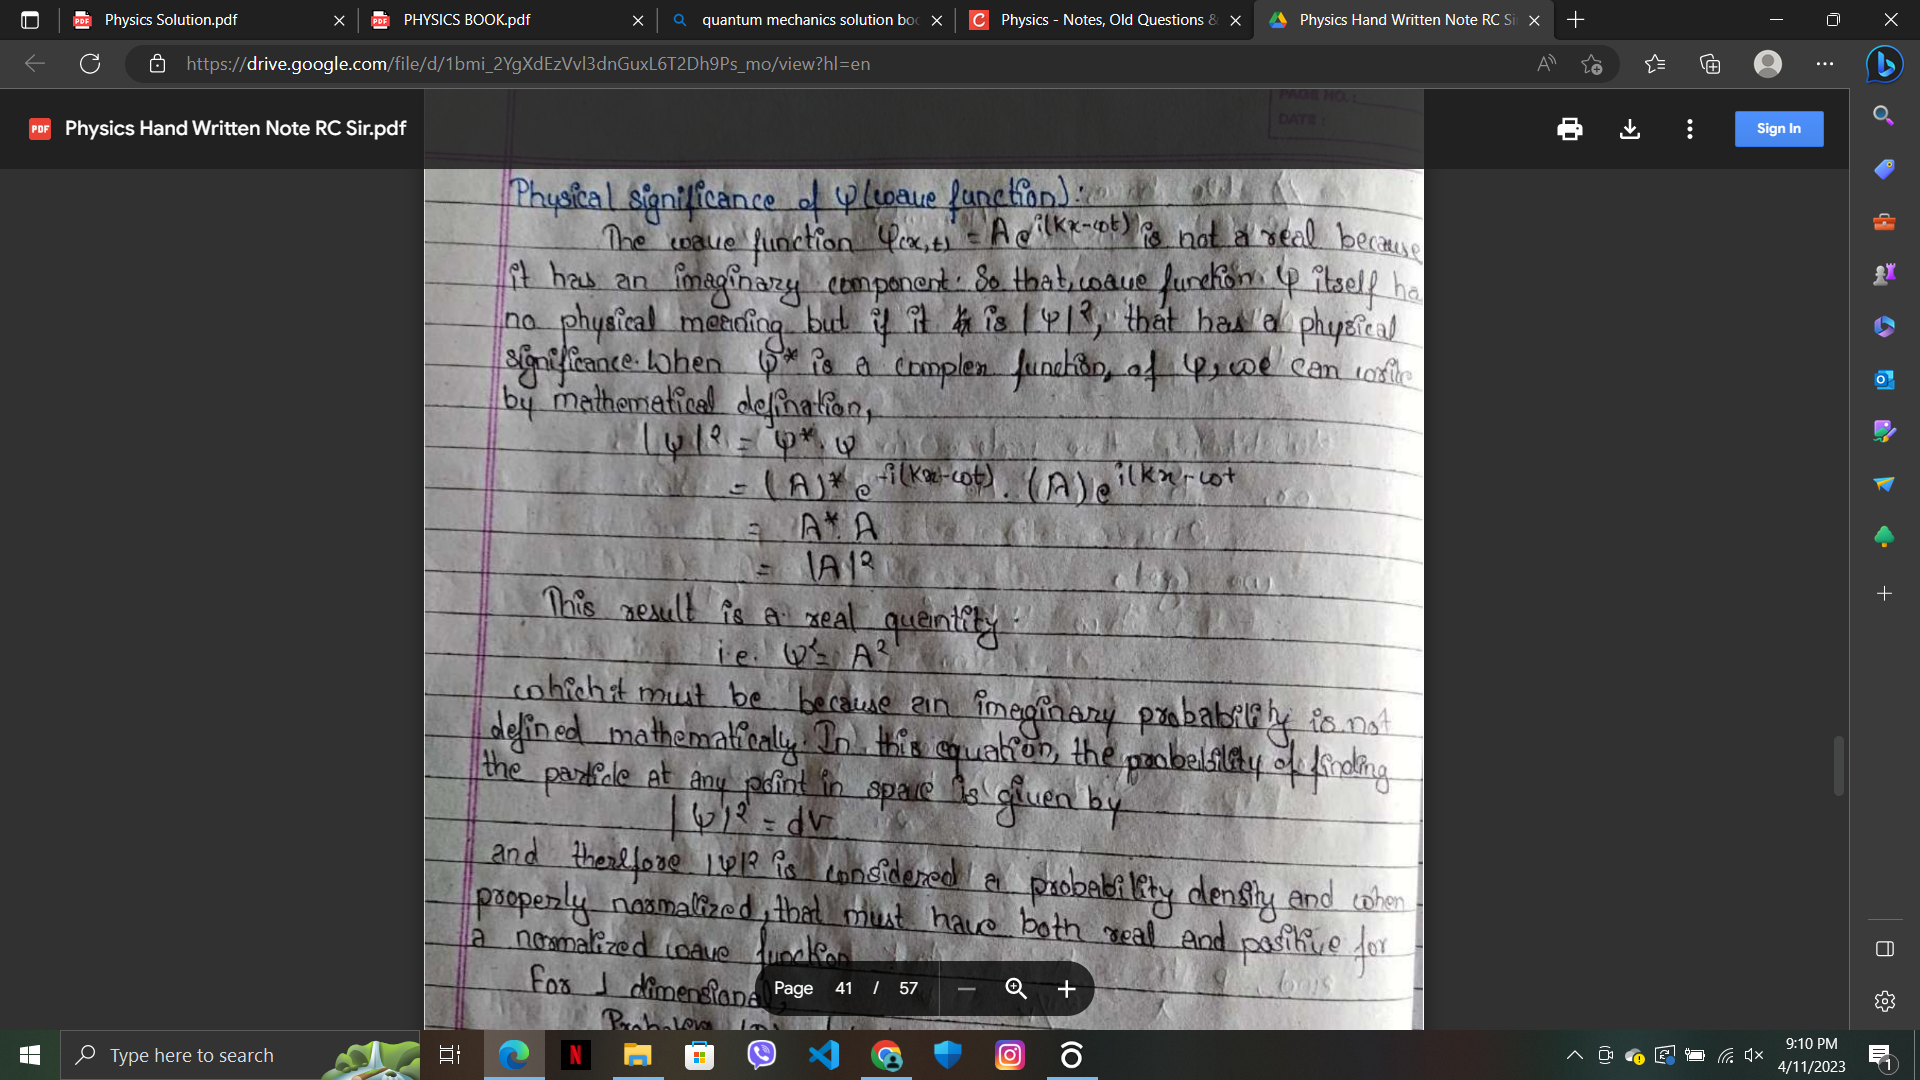 Physics Solution.pdf
PHYSICS BOOK.pdf
quantum mechanics solution boo
Physics - Notes, Old Questions &
Physics Hand Written Note RC Si
https://drive.google.com/file/d/1bmi_2YgXdEzVvl3dnGuxL6T2Dh9Ps_mo/view?hl=en
PDF Physics Hand Written Note RC Sir.pdf
Sign In
PAGE NO.:
DATE:
Physical significance of ψ (wave function):
The wave function ψ(x,t) = A e^i(kx-ωt) is not a real because
it has an imaginary component. So that, wave function ψ itself ha
no physical meaning but if it is |ψ|², that has a physical
significance. When ψ* is a complex function, of ψ, we can write
by mathematical defination,
|ψ|² = ψ*. ψ
= (A)* e^-i(kx-ωt) . (A) e^i(kx-ωt
= A*. A
= |A|²
This result is a real quantity.
i.e. ψ² = A²
which it must be because an imaginary probability is not
defined mathematically. In this equation, the probability of finding
the particle at any point in space is given by
|ψ|² = dV
and therefore |ψ|² is considered a probability density and when
properly normalized, that must have both real and positive for
a normalized wave function
For 1 dimensional,
Page 41 / 57
Type here to search
9:10 PM
4/11/2023
1